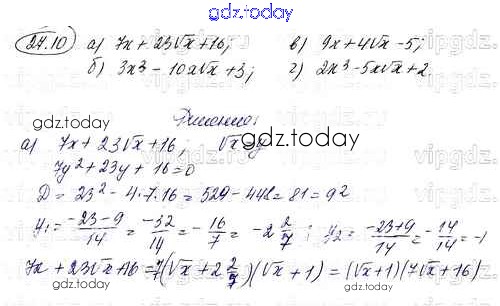 gdz.today
27.10 а) 7x + 23√x + 16; в) 9x + 4√x - 5;
б) 3x³ - 10x√x + 3; г) 2x³ - 5x√x + 2
gdz.today
Решение:
а) 7x + 23√x + 16; √x = y
7y² + 23y + 16 = 0
D = 23² - 4·7·16 = 529 - 448 = 81 = 9²
y₁ = (-23-9)/14 = -32/14 = -16/7 = -2 2/7; y₂ = (-23+9)/14 = -14/14 = -1
7x + 23√x + 16 = 7(√x + 2 2/7)(√x + 1) = (√x + 1)(7√x + 16)
gdz.today